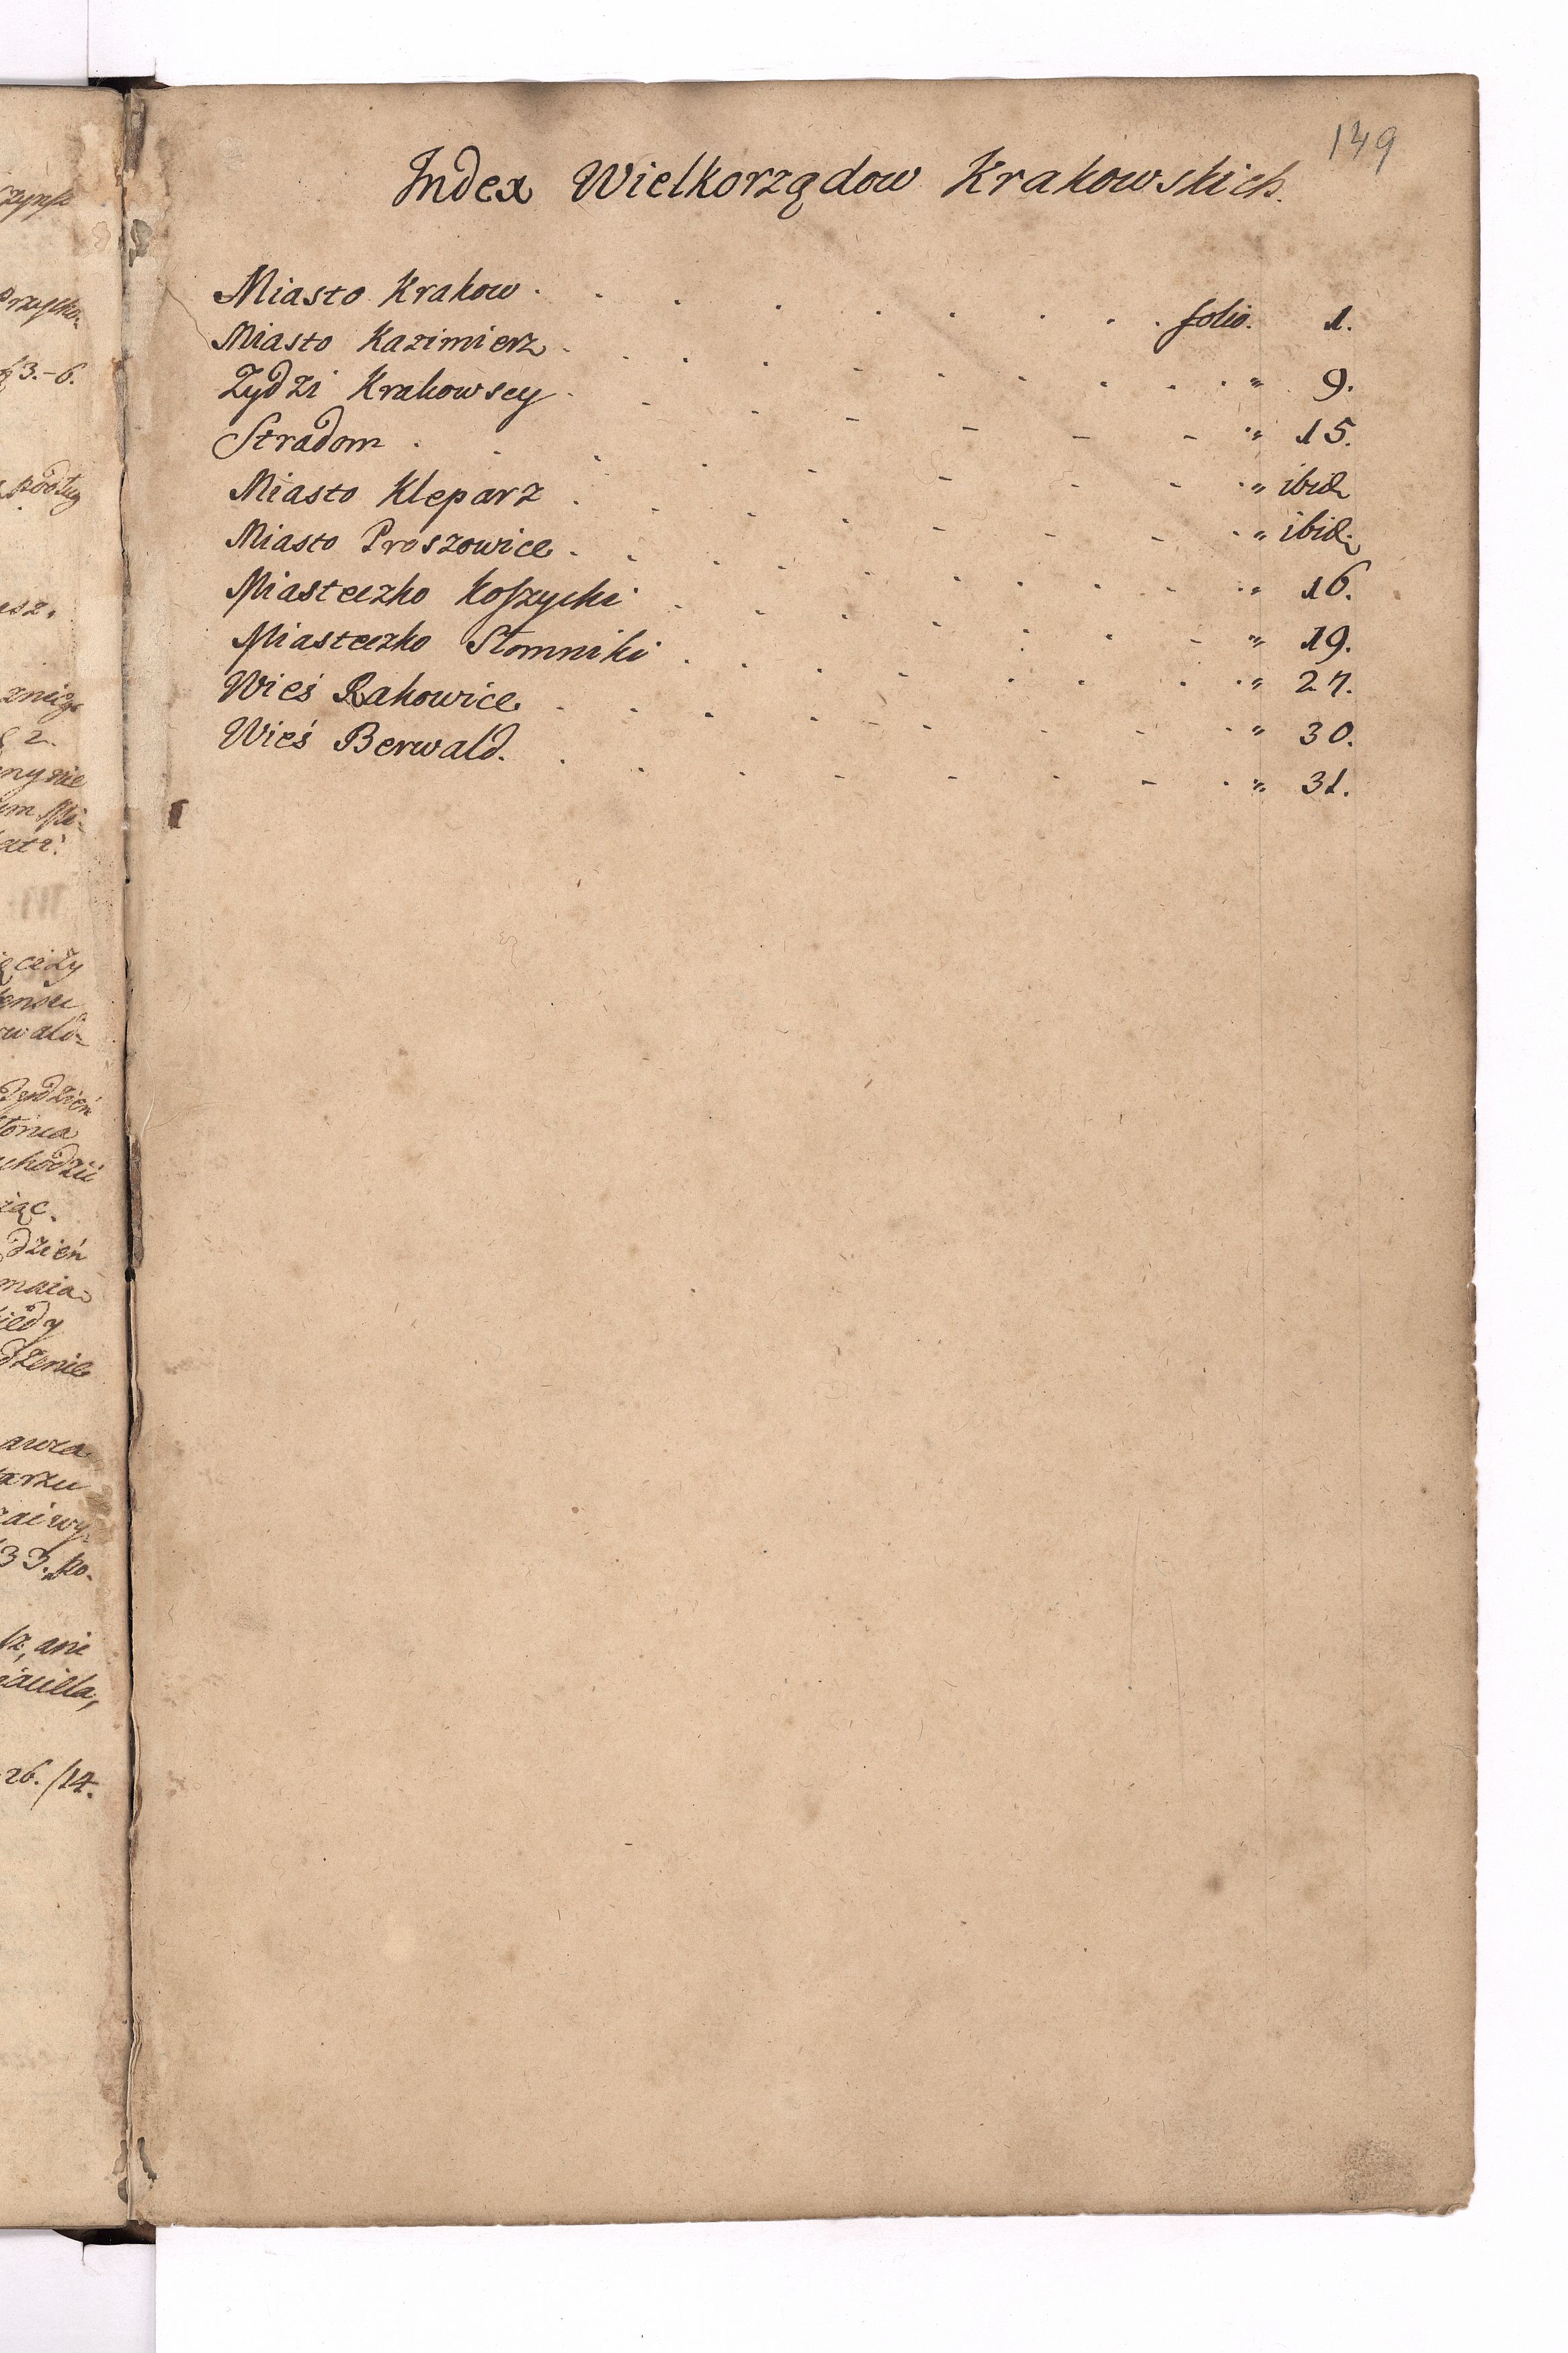 149
Index Wielkorządow Krakowskich.
Miasto Krakow . . . . . . . . . . folio. 1.
Miasto Kazimierz . . . . . . . . . . " 9.
Zydzi Krakowscy . - - - - - - . " 15.
Stradom . . . . - - - - . " ibid.
Miasto Kleparz . . . . - - - . " ibid.
Miasto Proszowice . . . . . . . . . . " 16.
Miasteczko Koszycki . . . . . . - " 19.
Miasteczko Słomniki . . . . . . . . " 27.
Wieś Rakowice . . . - - - - . " 30.
Wieś Berwald. . . - - - - - . " 31.
3.-6.
podług
dzień
26./14.